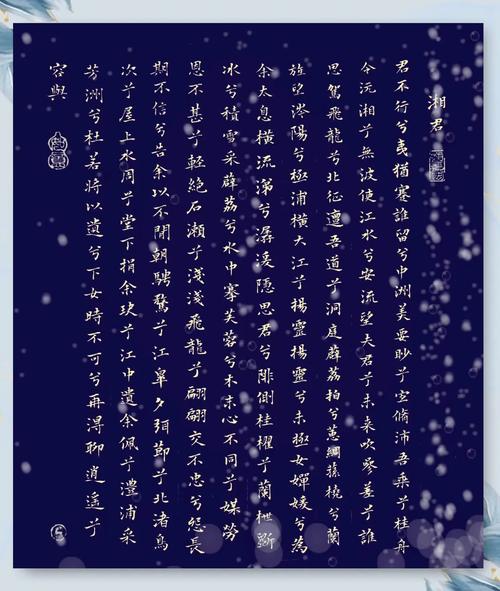 湘君
君不行兮夷猶蹇誰留兮中洲美要眇兮宜脩沛吾乘兮桂舟
令沅湘兮無波使江水兮安流望夫君兮未來吹參差兮誰
思駕飛龍兮北征邅吾道兮洞庭薜荔拍兮蕙綢蓀橈兮蘭
旌望涔陽兮極浦橫大江兮揚靈揚靈兮未極女嬋媛兮為
余太息橫流涕兮潺湲隱思君兮陫側桂櫂兮蘭枻斲
冰兮積雪采薜荔兮水中搴芙蓉兮木末心不同兮媒勞
恩不甚兮輕絕石瀨兮淺淺飛龍兮翩翩交不忠兮怨長
期不信兮告余以不閒朝騁騖兮江皋夕弭節兮北渚鳥
次兮屋上水周兮堂下捐余玦兮江中遺余佩兮澧浦采
芳洲兮杜若將以遺兮下女時不可兮再得聊逍遙兮
容與